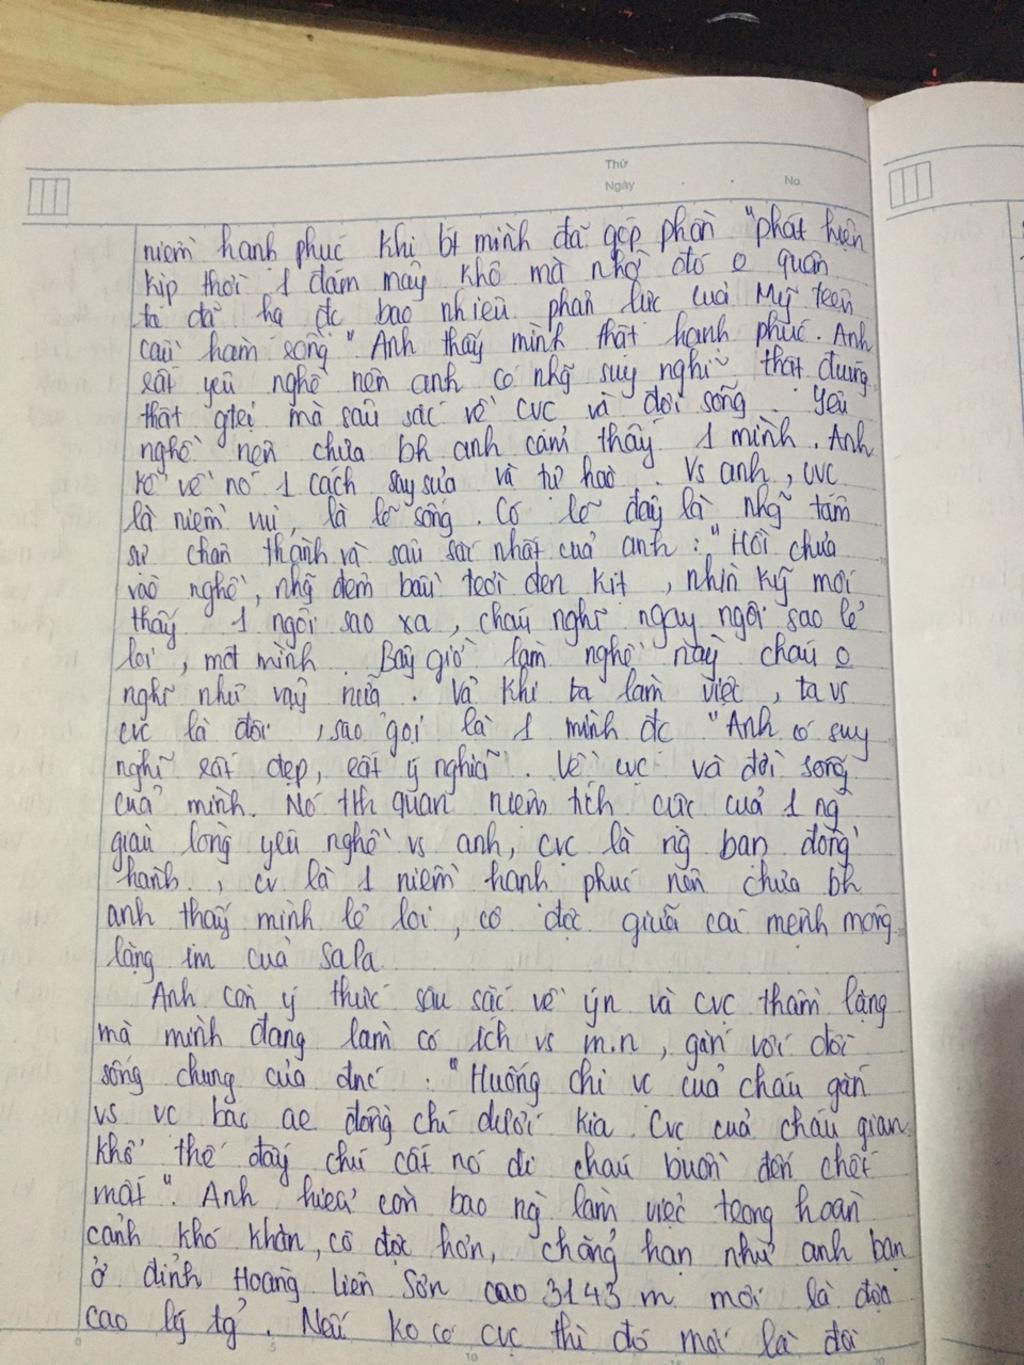 Thứ
Ngày No.
niềm hạnh phúc khi bt mình đã góp phần "phát hiện
kịp thời 1 đám mây khô mà nhờ đó o quân
ta đã hạ đc bao nhiêu phản lực của Mỹ trên
cầu hàm rồng" Anh thấy mình thật hạnh phúc. Anh
rất yêu nghề nên anh có nhg~ suy nghĩ thật đúng
thật mà sâu sắc về cvc và đời sống. Yêu
nghề nên chưa bh anh cảm thấy 1 mình. Anh
kể về nó 1 cách say sưa và tự hào. Vs anh, cvc
là niềm vui, là lẽ sống. Có lẽ đây là nhg~ tâm
sự chân thành và sâu sắc nhất của anh: "Hồi chưa
vào nghề, nhg~ đêm bầu trời đen kịt, nhìn kỹ mới
thấy 1 ngôi sao xa, cháu nghĩ ngay ngôi sao lẻ
loi, một mình. Bây giờ làm nghề này cháu o
nghĩ như vậy nữa. Vả khi ta làm việc, ta vs
cvc là đôi, sao gọi là 1 mình đc "Anh có suy
nghĩ rất đẹp, rất ý nghĩa. Về cvc và đời sống
của mình. Nó tth quan niệm tích cực của 1 ng
giàu lòng yêu nghề vs anh, cvc là ng` bạn đồng
hành, cv là 1 niềm hạnh phúc nên chưa bh
anh thấy mình lẻ loi, cô độc giữa cái mệnh mông
lặng im của SaPa.
Anh còn ý thức sâu sắc về ýn và cvc thầm lặng
mà mình đang làm có ích vs m.n, gắn với đời
sống chung của đnc: "Huống chi vc của cháu gắn
vs vc bao ae đồng chí dưới kia. Cvc của cháu gian
khổ thế đấy chứ cất nó đi cháu buồn đến chết
mất". Anh hiểu còn bao ng` làm việc trong hoàn
cảnh khó khăn, cô độc hơn, chẳng hạn như anh bạn
ở đỉnh Hoàng Liên Sơn cao 3143 m mới là độc
cao lý tg?. Nếu ko có cvc thì đó mới là đời